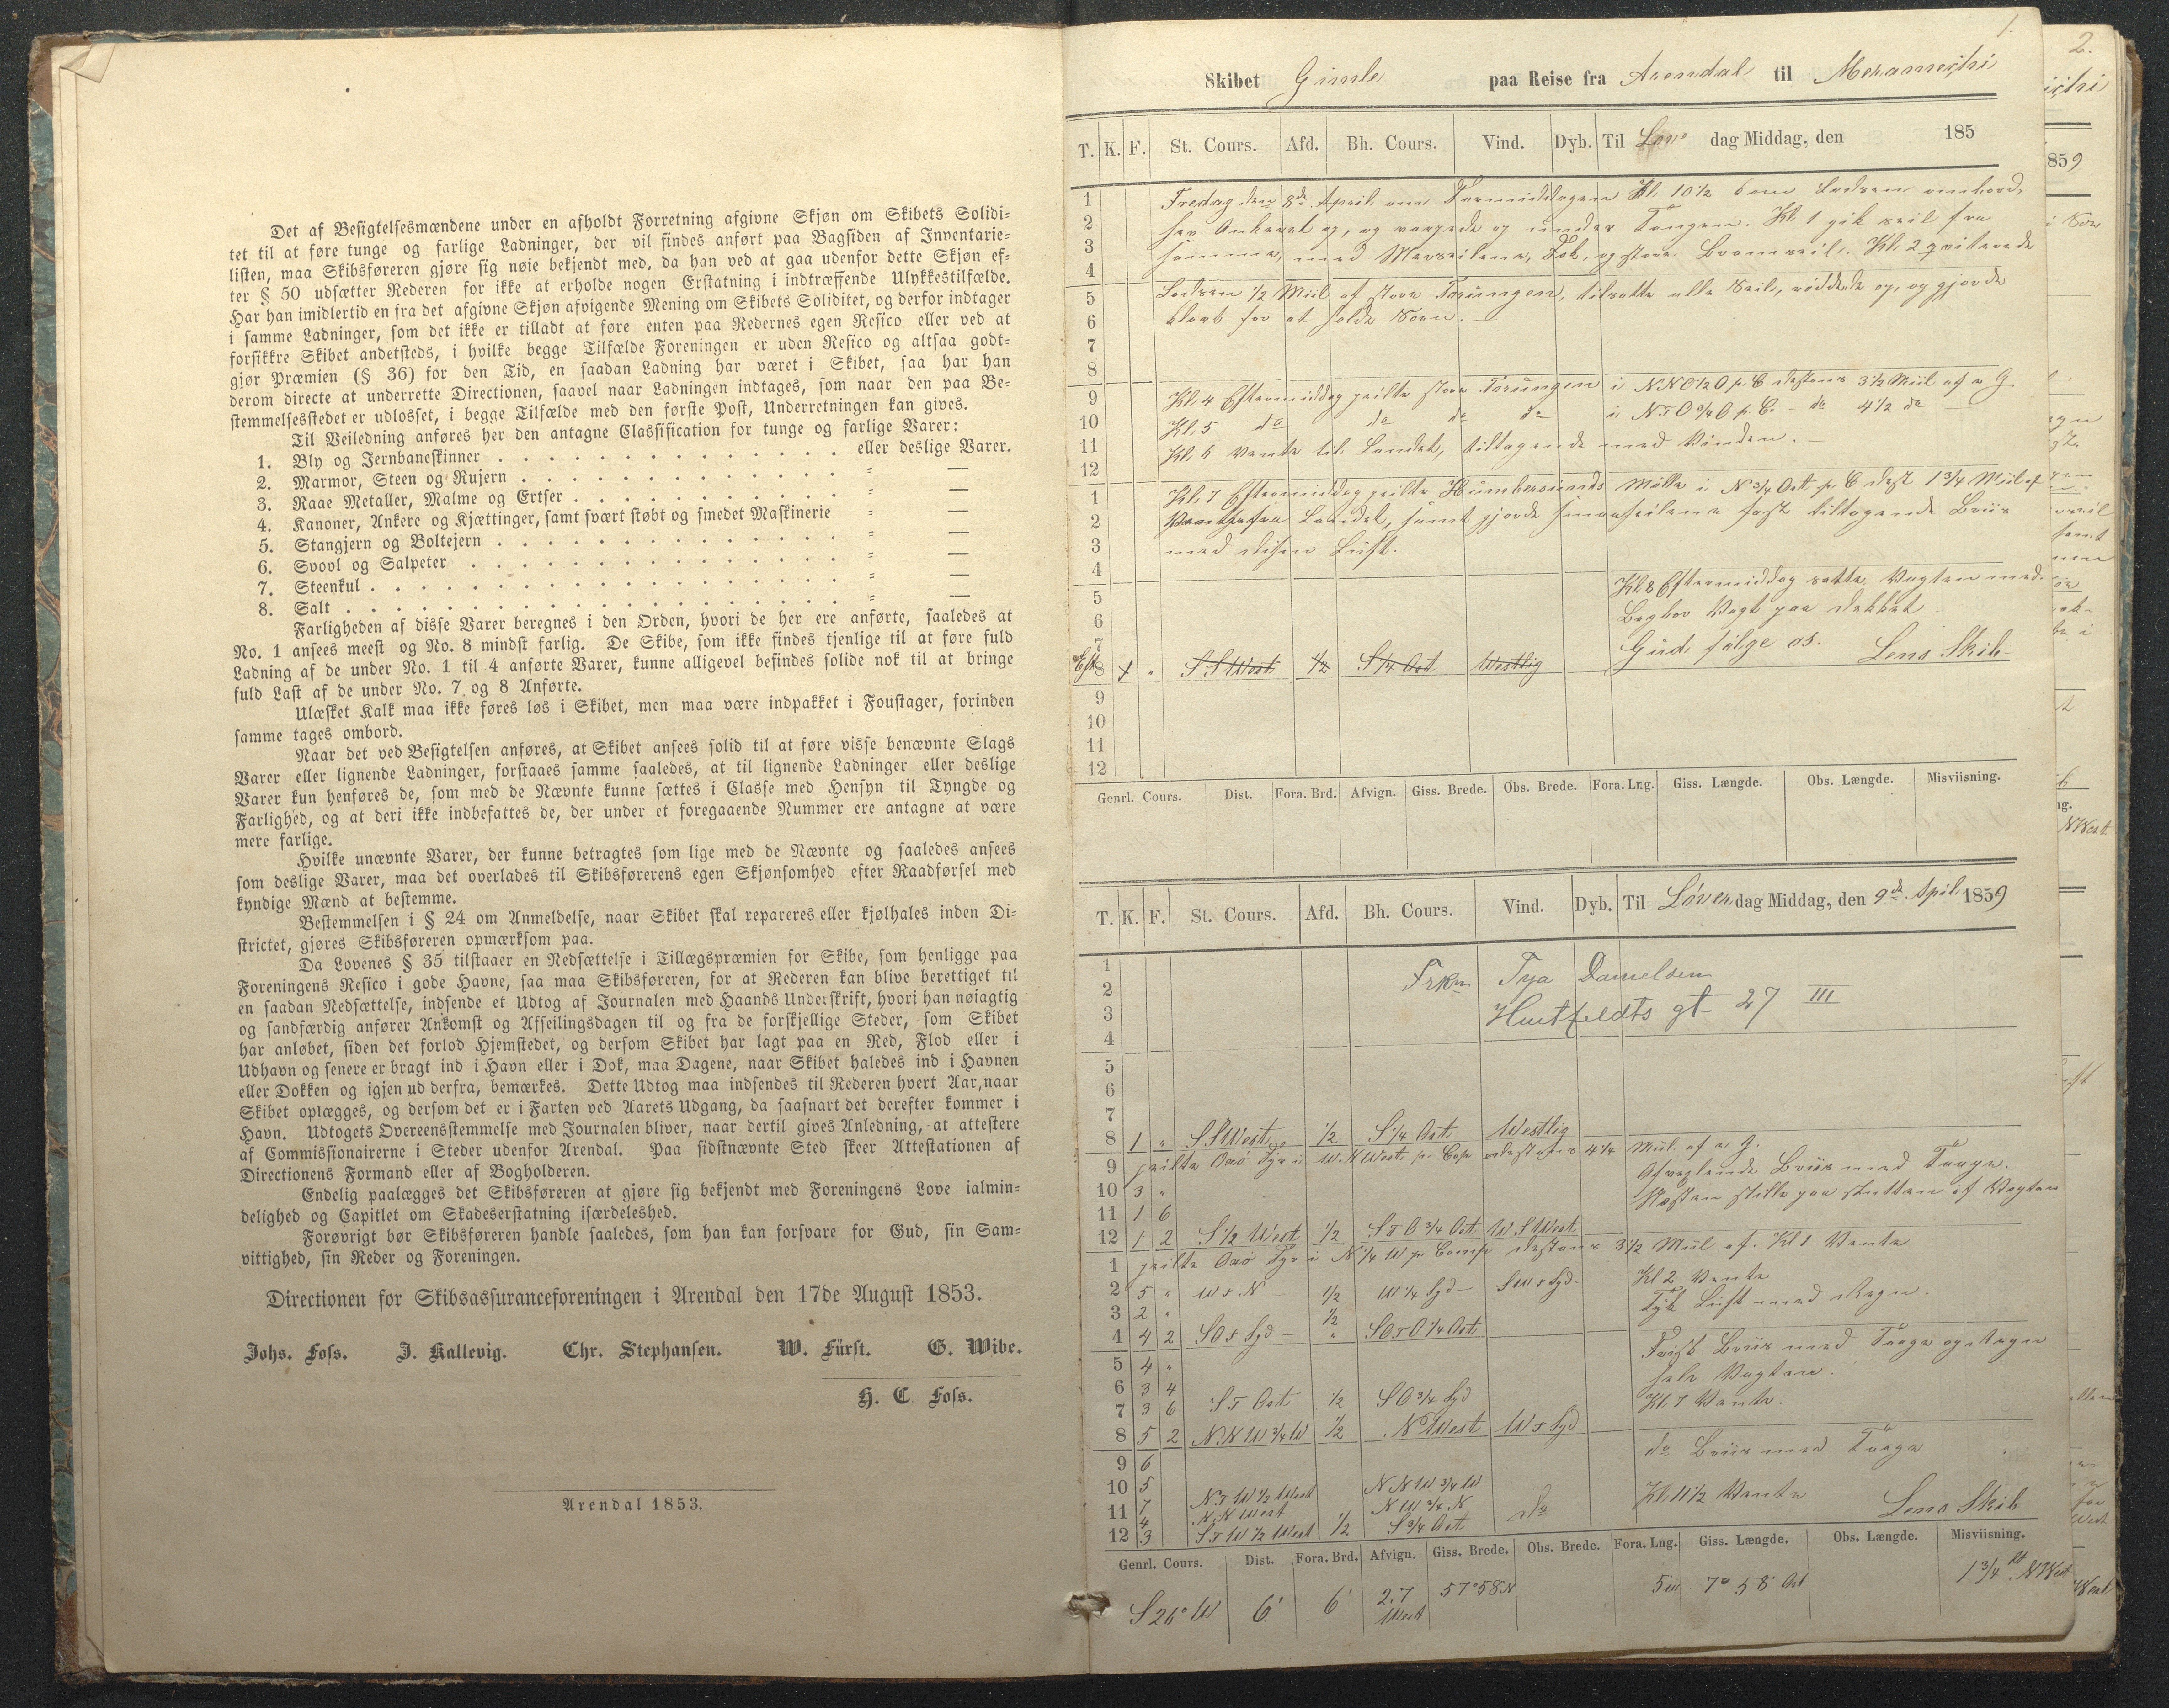 Det af Besigtelsesmændene under en afholdt Forretning afgivne Skjøn om Skibets Solidi-
tet til at føre tunge og farlige Ladninger, der vil findes anført paa Bagsiden af Inventarie-
listen, maa Skibsføreren gjøre sig nøie bekjendt med, da han ved at gaa udenfor dette Skjøn ef-
ter § 50 udsætter Rederen for ikke at erholde nogen Erstatning i indtræffende Ulykkestilfælde.
Har han imidlertid en fra det afgivne Skjøn afvigende Mening om Skibets Soliditet, og derfor indtager
i samme Ladninger, som det ikke er tilladt at føre enten paa Redernes egen Resico eller ved at
forsikkre Skibet andetsteds, i hvilke begge Tilfælde Foreningen er uden Resico og altsaa godt-
gjør Præmien (§ 36) for den Tid, en saadan Ladning har været i Skibet, saa har han
derom directe at underrette Directionen, saavel naar Ladningen indtages, som naar den paa Be-
stemmelsesstedet er udlosset, i begge Tilfælde med den første Post, Underretningen kan gives.
Til Veiledning anføres her den antagne Classification for tunge og farlige Varer:
1. Bly og Jernbaneskinner . . . . . . . . . . . . . . eller deslige Varer.
2. Marmor, Steen og Rujern . . . . . . . . . . . . . = —
3. Raae Metaller, Malme og Ertser . . . . . . . . . . . = —
4. Kanoner, Ankere og Kjættinger, samt svært støbt og smedet Maskinerie = —
5. Stangjern og Boltejern . . . . . . . . . . . . . . = —
6. Svovl og Salpeter . . . . . . . . . . . . . . . = —
7. Steenkul . . . . . . . . . . . . . . . . . . . = —
8. Salt . . . . . . . . . . . . . . . . . . . . = —
Farligheden af disse Varer beregnes i den Orden, hvori de her ere anførte, saaledes at
No. 1 ansees meest og No. 8 mindst farlig. De Skibe, som ikke findes tjenlige til at føre fuld
Ladning af de under No. 1 til 4 anførte Varer, kunne alligevel befindes solide nok til at bringe
fuld Last af de under No. 7 og 8 Anførte.
Ulæsket Kalk maa ikke føres løs i Skibet, men maa være indpakket i Foustager, forinden
samme tages ombord.
Naar det ved Besigtelsen anføres, at Skibet ansees solid til at føre visse benævnte Slags
Varer eller lignende Ladninger, forstaaes samme saaledes, at til lignende Ladninger eller deslige
Varer kun henføres de, som med de Nævnte kunne sættes i Classe med Hensyn til Tyngde og
Farlighed, og at deri ikke indbefattes de, der under et foregaaende Nummer ere antagne at være
mere farlige.
Hvilke unævnte Varer, der kunne betragtes som lige med de Nævnte og saaledes ansees
som deslige Varer, maa det overlades til Skibsførerens egen Skjønsomhed efter Raadførsel med
kyndige Mænd at bestemme.
Bestemmelsen i § 24 om Anmeldelse, naar Skibet skal repareres eller kjølhales inden Di-
strictet, gjøres Skibsføreren opmærksom paa.
Da Lovenes § 35 tilstaaer en Nedsættelse i Tillægspræmien for Skibe, som henligge paa
Foreningens Resico i gode Havne, saa maa Skibsføreren, for at Rederen kan blive berettiget til
en saadan Nedsættelse, indsende et Udtog af Journalen med Haands Underskrift, hvori han nøiagtig
og sandfærdig anfører Ankomst og Afseilingsdagen til og fra de forskjellige Steder, som Skibet
har anløbet, siden det forlod Hjemstedet, og dersom Skibet har lagt paa en Red, Flod eller i
Udhavn og senere er bragt ind i Havn eller i Dok, maa Dagene, naar Skibet haledes ind i Havnen
eller Dokken og igjen ud derfra, bemærkes. Dette Udtog maa indsendes til Rederen hvert Aar, naar
Skibet oplægges, og dersom det er i Farten ved Aarets Udgang, da saasnart det derefter kommer i
Havn. Udtogets Overeensstemmelse med Journalen bliver, naar dertil gives Anledning, at attestere
af Commissionairerne i Steder udenfor Arendal. Paa sidstnævnte Sted skeer Attestationen af
Directionens Formand eller af Bogholderen.
Endelig paalægges det Skibsføreren at gjøre sig bekjendt med Foreningens Love i almin-
delighed og Capitlet om Skadeserstatning isærdeleshed.
Forøvrigt bør Skibsføreren handle saaledes, som han kan forsvare for Gud, sin Sam-
vittighed, sin Reder og Foreningen.
Directionen for Skibsassuranceforeningen i Arendal den 17de August 1853.
Johs. Foss. J. Kallevig. Chr. Stephansen. W. Fürst. G. Wibe.
H. C. Foss.
Arendal 1853.
1.
Skibet Gimle paa Reise fra Arendal til
T. K. F. St. Cours. Afd. Bh. Cours. Vind. Dyb. Til dag Middag, den 185
1 Fredag den 8de April om Formiddagen Kl. 10 1/2 kom Lodsen ombord,
2 hev Ankeret op, og varpede op under Tangen. Kl. 1 gik seil fra
3 samme, med Merseilene, Fok, og store Bramseil. Kl. 2 qviterede
4
5 Lodsen 1/2 Miil af store Torungen, tilsatte alle Seil, röddede op, og gjorde
6 klart for at holde Søen.
7
8
9 Kl. 4 Eftermiddag peilte store Torungen i NNO 1/2 O p. C. destans 3 1/2 Miil af a G.
10 Kl. 5 do do do do i NTO 3/4 O p. C. - do 4 1/2 do
11 Kl. 6 Vente til Landet, tiltagende med Vinden.
12
1 Kl. 7 Eftermiddag peilte Humbersunds Mølle i N 3/4 Ost p. C dest 1 3/4 Miil af
2 fra Landet, samt gjorde smaaseilene fast tiltagende Briis
3 med disen Luft.
4
5 Kl. 8 Eftermiddag satte Vagten med
6 Bagbor Vagt paa Dekket
7 Gud følge os. Lens Skib
8 S S West 1/2 S 1/4 Ost Westlig
9
10
11
12
Genrl. Cours. Dist. Fora. Brd. Afvign. Giss. Brede. Obs. Brede. Fora. Lng. Giss. Længde. Obs. Længde. Misviisning.
T. K. F. St. Cours. Afd. Bh. Cours. Vind. Dyb. Til Löver dag Middag, den 9de April 1859
1 Frkn Tya Danielsen
2
3 Huitfeldts gt 27 III
4
5
6
7
8 1 " SSWest 1/2 S 1/4 Ost Westlig
9 peilte Oxö Fyr i W.N.West p. Cop destans 4 1/4 Miil af a G.
Afvexlende Briis med Taage.
10 3 "
11 1 6 Næsten stille paa slutten af Vagten
12 1 2 S 1/2 West 1/2 STO 3/4 Ost W.S.West
1 peilte Oxö Fyr i N 1/4 W p. Comp destans 3 1/2 Miil af. Kl 1 Vente
2 5 " W T N 1/2 W 1/4 Syd SW T Syd Kl 2 Vente
3 2 " 1/2 Tyk Luft med Regn.
4 4 2 SO T Syd " SOTO 1/4 Ost
5 4 " Frisk Briis med Taage og Regn
6 3 4 hele Vagten.
7 3 6 S T Ost 1/2 SO 3/4 Syd Kl. 7 Vente.
8 5 2 N.N.W 3/4 W 1/2 N West W T Syd
9 6 do Briis med Taage
10 5 N T W 1/2 West NNW 3/4 W
11 7 N.N West NW 3/4 N do Kl. 11 1/2 Vente
4
12 3 S T W 1/2 West 1/2 S 3/4 Ost Lens Skib
Genrl. Cours. Dist. Fora. Brd. Afvign. Giss. Brede. Obs. Brede. Fora. Lng. Giss. Længde. Obs. Længde. Misviisning.
S 26° W 6' 6' 2.7 West 57°58 N 5 w 7° 58' Ost 1 3/4 St. N West
2.
859